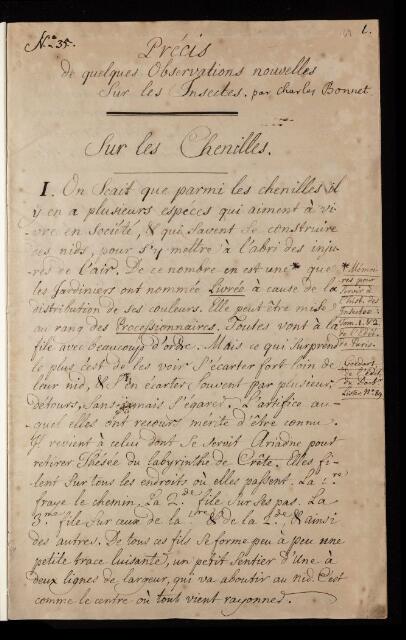 N.o 35.
1.
Précis
de quelques Observations nouvelles
Sur les Insectes. par Charles Bonnet
Sur les Chenilles.
I. On Sçait que parmi les chenilles il
y en a plusieurs espéces qui aiment à vi-
vre en Société, & qui Savent se construire
des nids, pour s'y mettre à l'abri des inju-
res de l'air. De ce nombre en est une * que
les Jardiniers ont nommée Livrée à cause de la
distribution de ses couleurs. Elle peut être mise
au rang des Processionnaires. Toutes vont à la
file avec beaucoup d'ordre. Mais ce qui Surprend
le plus c'est de les voir S'écarter fort loin de
leur nid, & S'en écarter Souvent par plusieurs
détours, Sans jamais S'égarer. L'artifice au-
quel elles ont recours mérite d'être connu.
Il revient à celui dont Se Servit Ariadne pour
retirer Thésée du labyrinthe de Crête. Elles fi-
lent Sur tous les endroits où elles passent. La 1.re
fraye le chemin. La 2.de file Sur Ses pas. La
3.me file Sur ceux de la 1.ère & de la 2.de, & ainsi
des autres. De tous ces fils Se forme peu à peu une
petite trace luisante, un petit Sentier d'une à
deux lignes de largeur, qui va aboutir au nid. C'est
comme le centre où tout vient rayonner.
* Mémoi-
res pour
Servir à
l'Hist. des
Insectes
Tom. I.
de Paris.
Goedart
de l'Edit.
de
Lister N.o